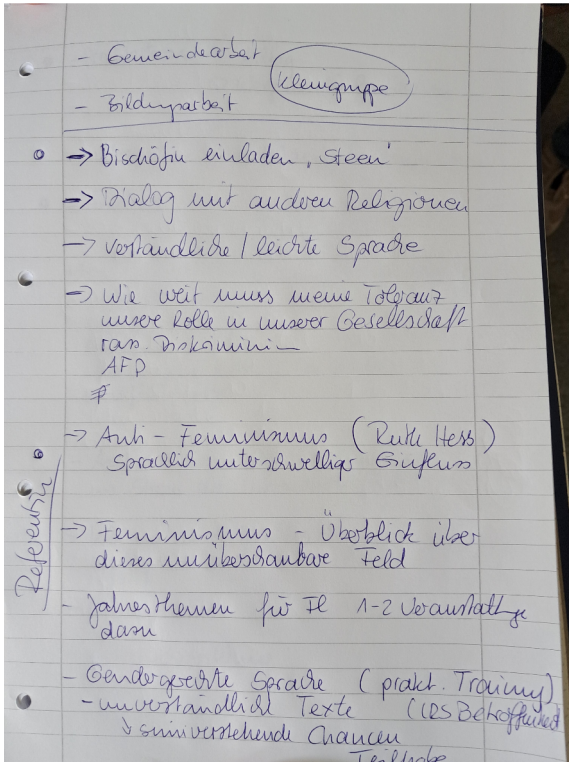 - Gemeindearbeit
Kleingruppe
- Bildungsarbeit
-> Bischöfin einladen, Steen'
-> Dialog mit anderen Religionen
-> verständliche / leichte Sprache
-> Wie weit muss meine Toleranz
unsere Rolle in unserer Gesellschaft
rass. Diskriminin
AFD
-> Anti - Feminismus (Ruth Hess)
Sprachlich unterschwelliger Einfluss
Referentin
-> Feminismus - Überblick über
dieses unüberschaubare Feld
- Jahresthemen für 1-2 Veranstaltunge
dazu
- Gendergerechte Sprache (prakt. Training)
- unverständliche Texte
Chancen
Teilhabe